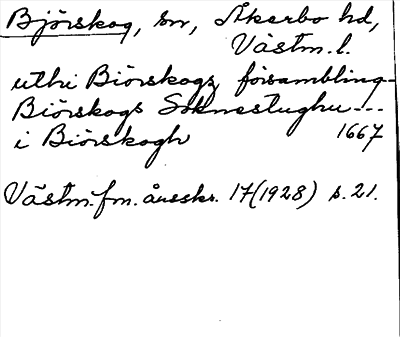 Björskog, sn, Åkerbo hd,
Västm. l.
uthi Biörskogz försambling -
Biörskogs Soknestughu ...
i Biörskogh 1667
Västm. fm. årsskr. 17 (1928) s. 21.